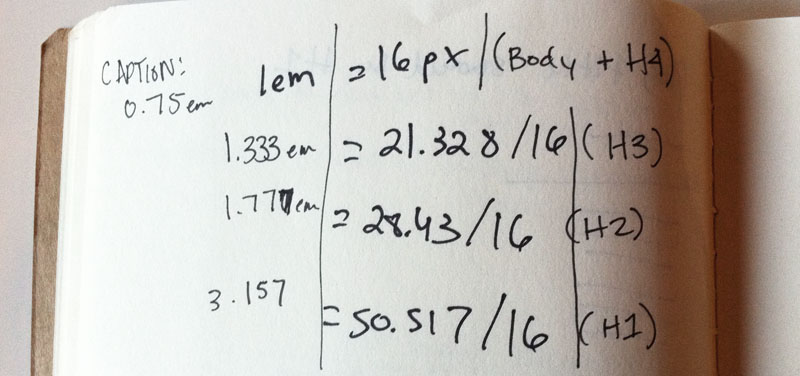 CAPTION:
0.75em
1em = 16px (Body + H4)
1.333em = 21.328/16 (H3)
1.777em = 28.43/16 (H2)
3.157 = 50.517/16 (H1)